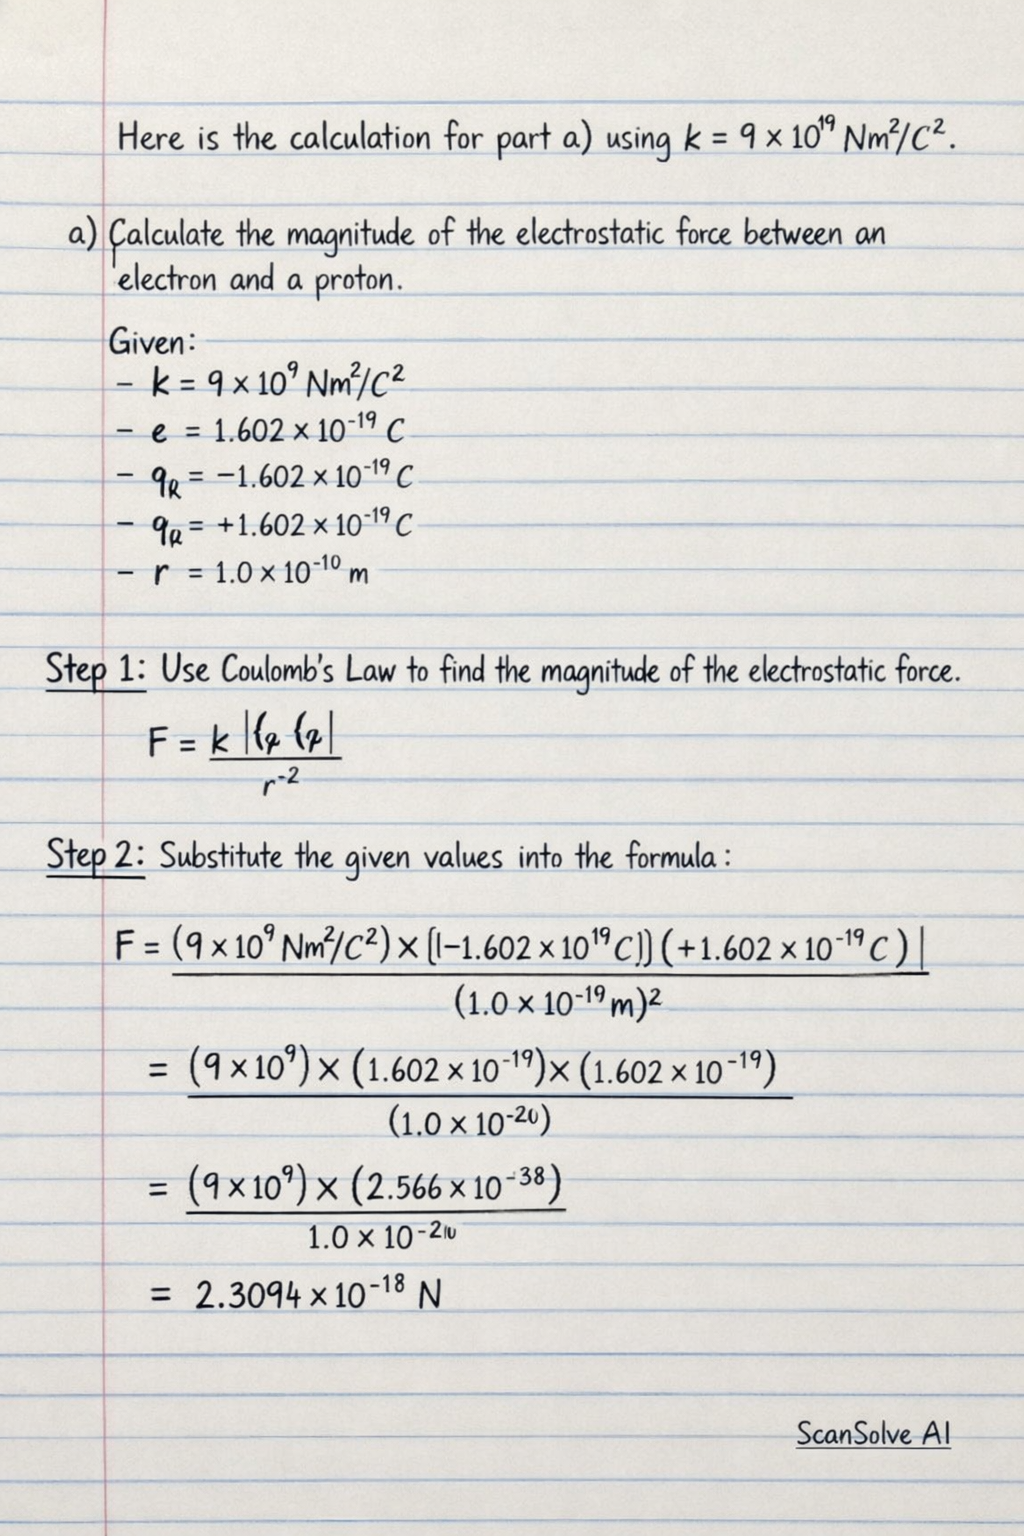 Here is the calculation for part a) using k = 9 × 10¹⁹ Nm²/C².
a) Calculate the magnitude of the electrostatic force between an
electron and a proton.
Given:
– k = 9 × 10⁹ Nm²/C²
– e = 1.602 × 10⁻¹⁹ C
– q_R = −1.602 × 10⁻¹⁹ C
– q_R = +1.602 × 10⁻¹⁹ C
– r = 1.0 × 10⁻¹⁰ m
Step 1: Use Coulomb's Law to find the magnitude of the electrostatic force.
F = k
r⁻²
Step 2: Substitute the given values into the formula:
F = (9 × 10⁹ Nm²/C²) × [|−1.602 × 10¹⁹ C|] (+1.602 × 10⁻¹⁹ C) |
(1.0 × 10⁻¹⁹ m)²
= (9 × 10⁹) × (1.602 × 10⁻¹⁹) × (1.602 × 10⁻¹⁹)
(1.0 × 10⁻²⁰)
= (9 × 10⁹) × (2.566 × 10⁻³⁸)
1.0 × 10
= 2.3094 × 10⁻¹⁸ N
ScanSolve AI